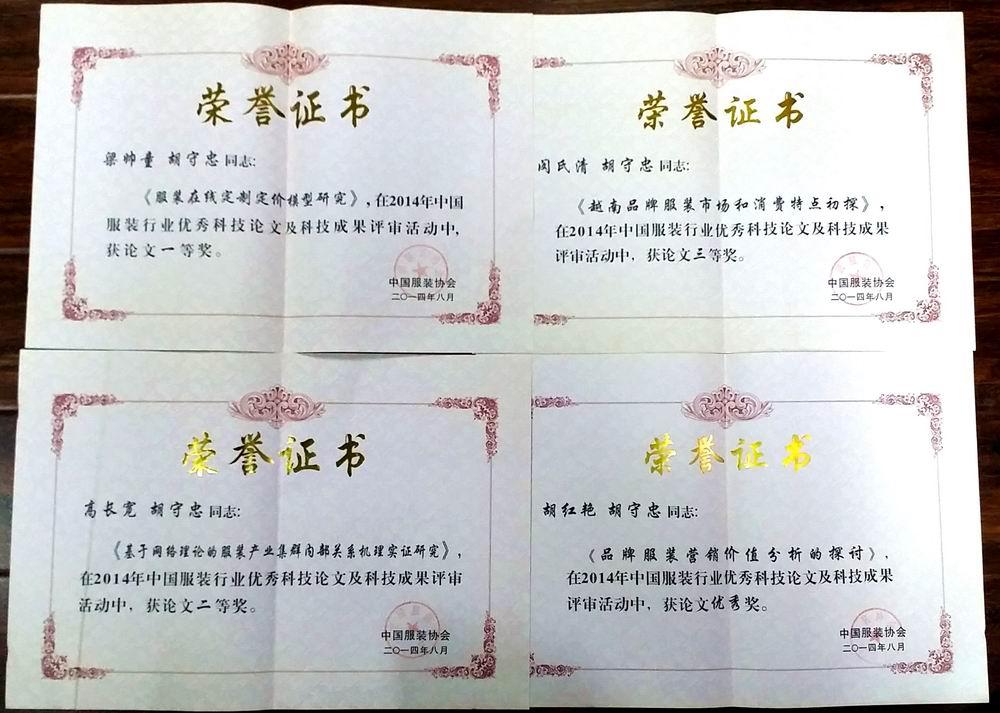 荣誉证书
梁帅童 胡守忠同志:
《服装在线定制定价模型研究》,在2014年中国
服装行业优秀科技论文及科技成果评审活动中,
获论文一等奖。
中国服装协会
二〇一四年八月
荣誉证书
阎氏清 胡守忠同志:
《越南品牌服装市场和消费特点初探》,
在2014年中国服装行业优秀科技论文及科技成果
评审活动中,获论文三等奖。
中国服装协会
二〇一四年八月
荣誉证书
高长宽 胡守忠同志:
《基于网络理论的服装产业集群内部关系机理实证研究》,
在2014年中国服装行业优秀科技论文及科技成果评审
活动中,获论文二等奖。
中国服装协会
二〇一四年八月
荣誉证书
胡红艳 胡守忠同志:
《品牌服装营销价值分析的探讨》,
在2014年中国服装行业优秀科技论文及科技成果
评审活动中,获论文优秀奖。
中国服装协会
二〇一四年八月